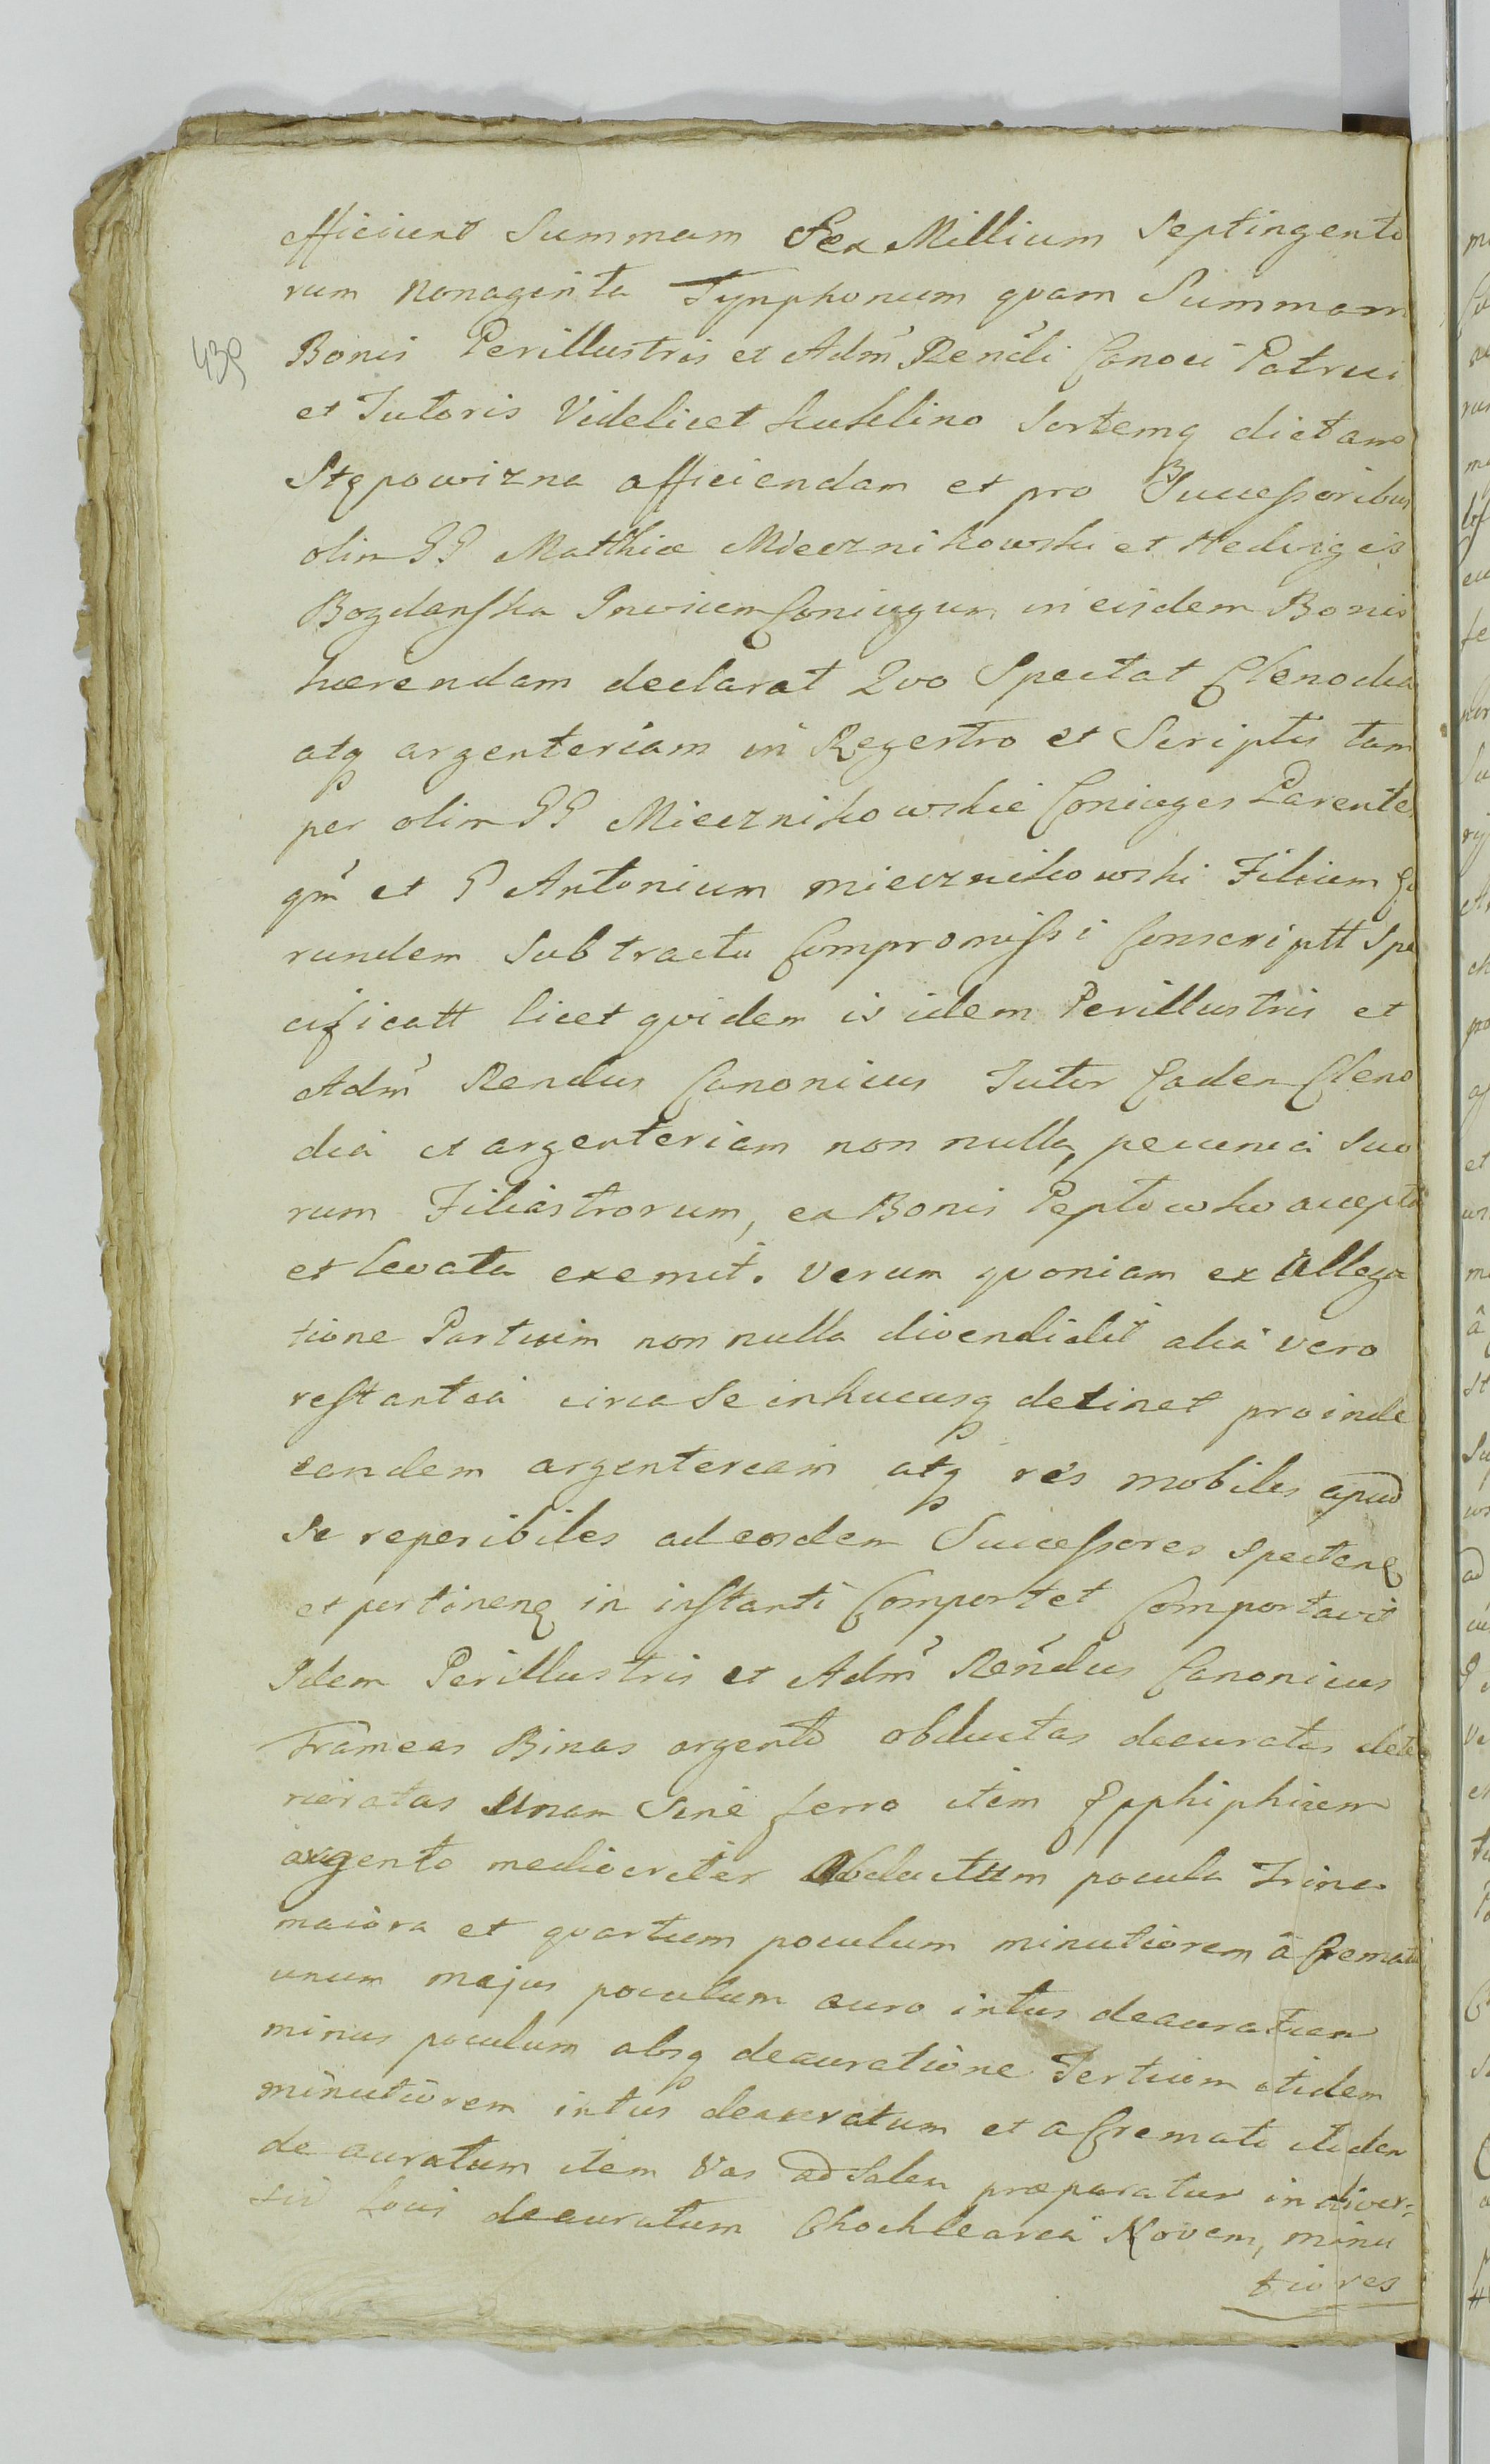 efficiunt Summam Sex Millium Septingento
rum Nonaginta Tynphonum qvam Summam
439
Bonis Perillustris et Adm̃ Rendi Canoci Patrui
et Tutoris Videlicet Sortemq dictam
Stępowizna afficiendam et pro Successoribus
olim GG Matthiæ Miecznikowski et Hedvigis
Bogdanska Invicem Coniugum in eisdem Bonis
hærendam declarat Qvo Spectat Clenodia
atq argenteriam in Regestro et Scriptis tam
per olim GG Miecznikowskie Coniuges Parentes
qm̃ et G Antonium Miecznikowski Filium Eo
rundem Sub tractu Compromissi Conscriptt Spe
cificatt licet qvidem is idem Perillustris et
Adm̃ Rendus Canonicus Tutor Eadem Cleno
dia et argenteriam non nulla, pecunia Suo
rum Filiastrorum, ex Bonis Peptowko accepta
et levata exemit. Verum qvoniam ex Allega
tione Partium non nulla divendidit alia vero
restantia circa Se inhucusq detinet proinde
eandem argenteriam atq res mobiles apud
Se reperibiles ad eosdem Successores Spectenę
et pertinenę in instanti Comportet Comportavit
Idem Perillustris et Adm̃ Rendus Canonicus
Frameas Binas argento obductas deauratas dete
rioratas Unam Sine ferro item Epphiphiem
argento mediocriter Obductum pocula Trina
maiora et qvartum poculum minutiorem â Cremati
unum majus poculum auro intus deauratum
minus poculum absq deauratione Tertium itidem
minutiorem intus deauratum et a Cremati itidem
de auratum item Vas ad Salem præparatum in diver-
sis Locis deauratum Chochlearea Novem, minu
tiores